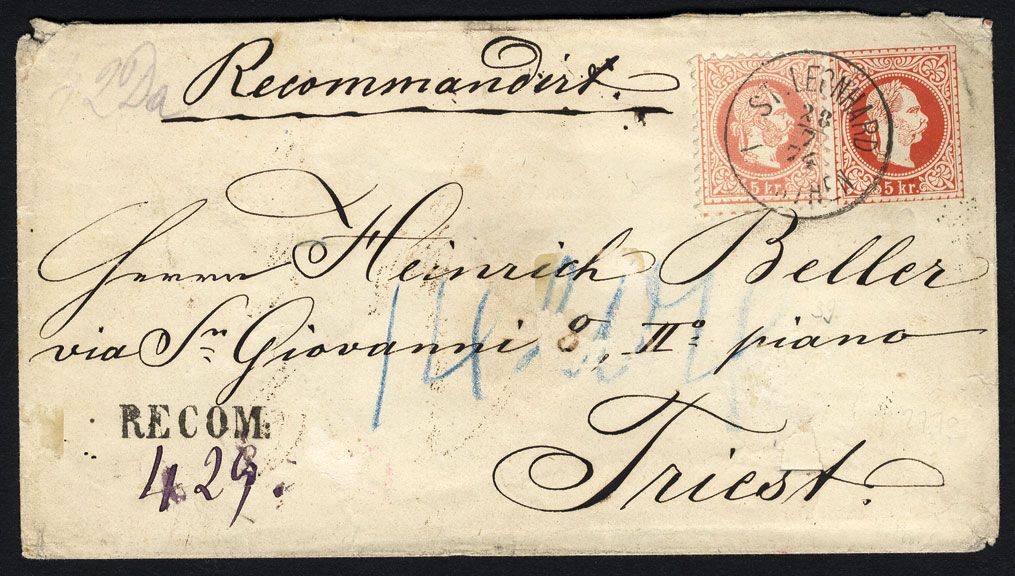 Recommandirt.
ST. LEONHARD
28
7
5 kr.
5 kr.
Herrn Heinrich Beller
via Sn Giovanni 8, IIo piano
Triest.
RECOM:
429.